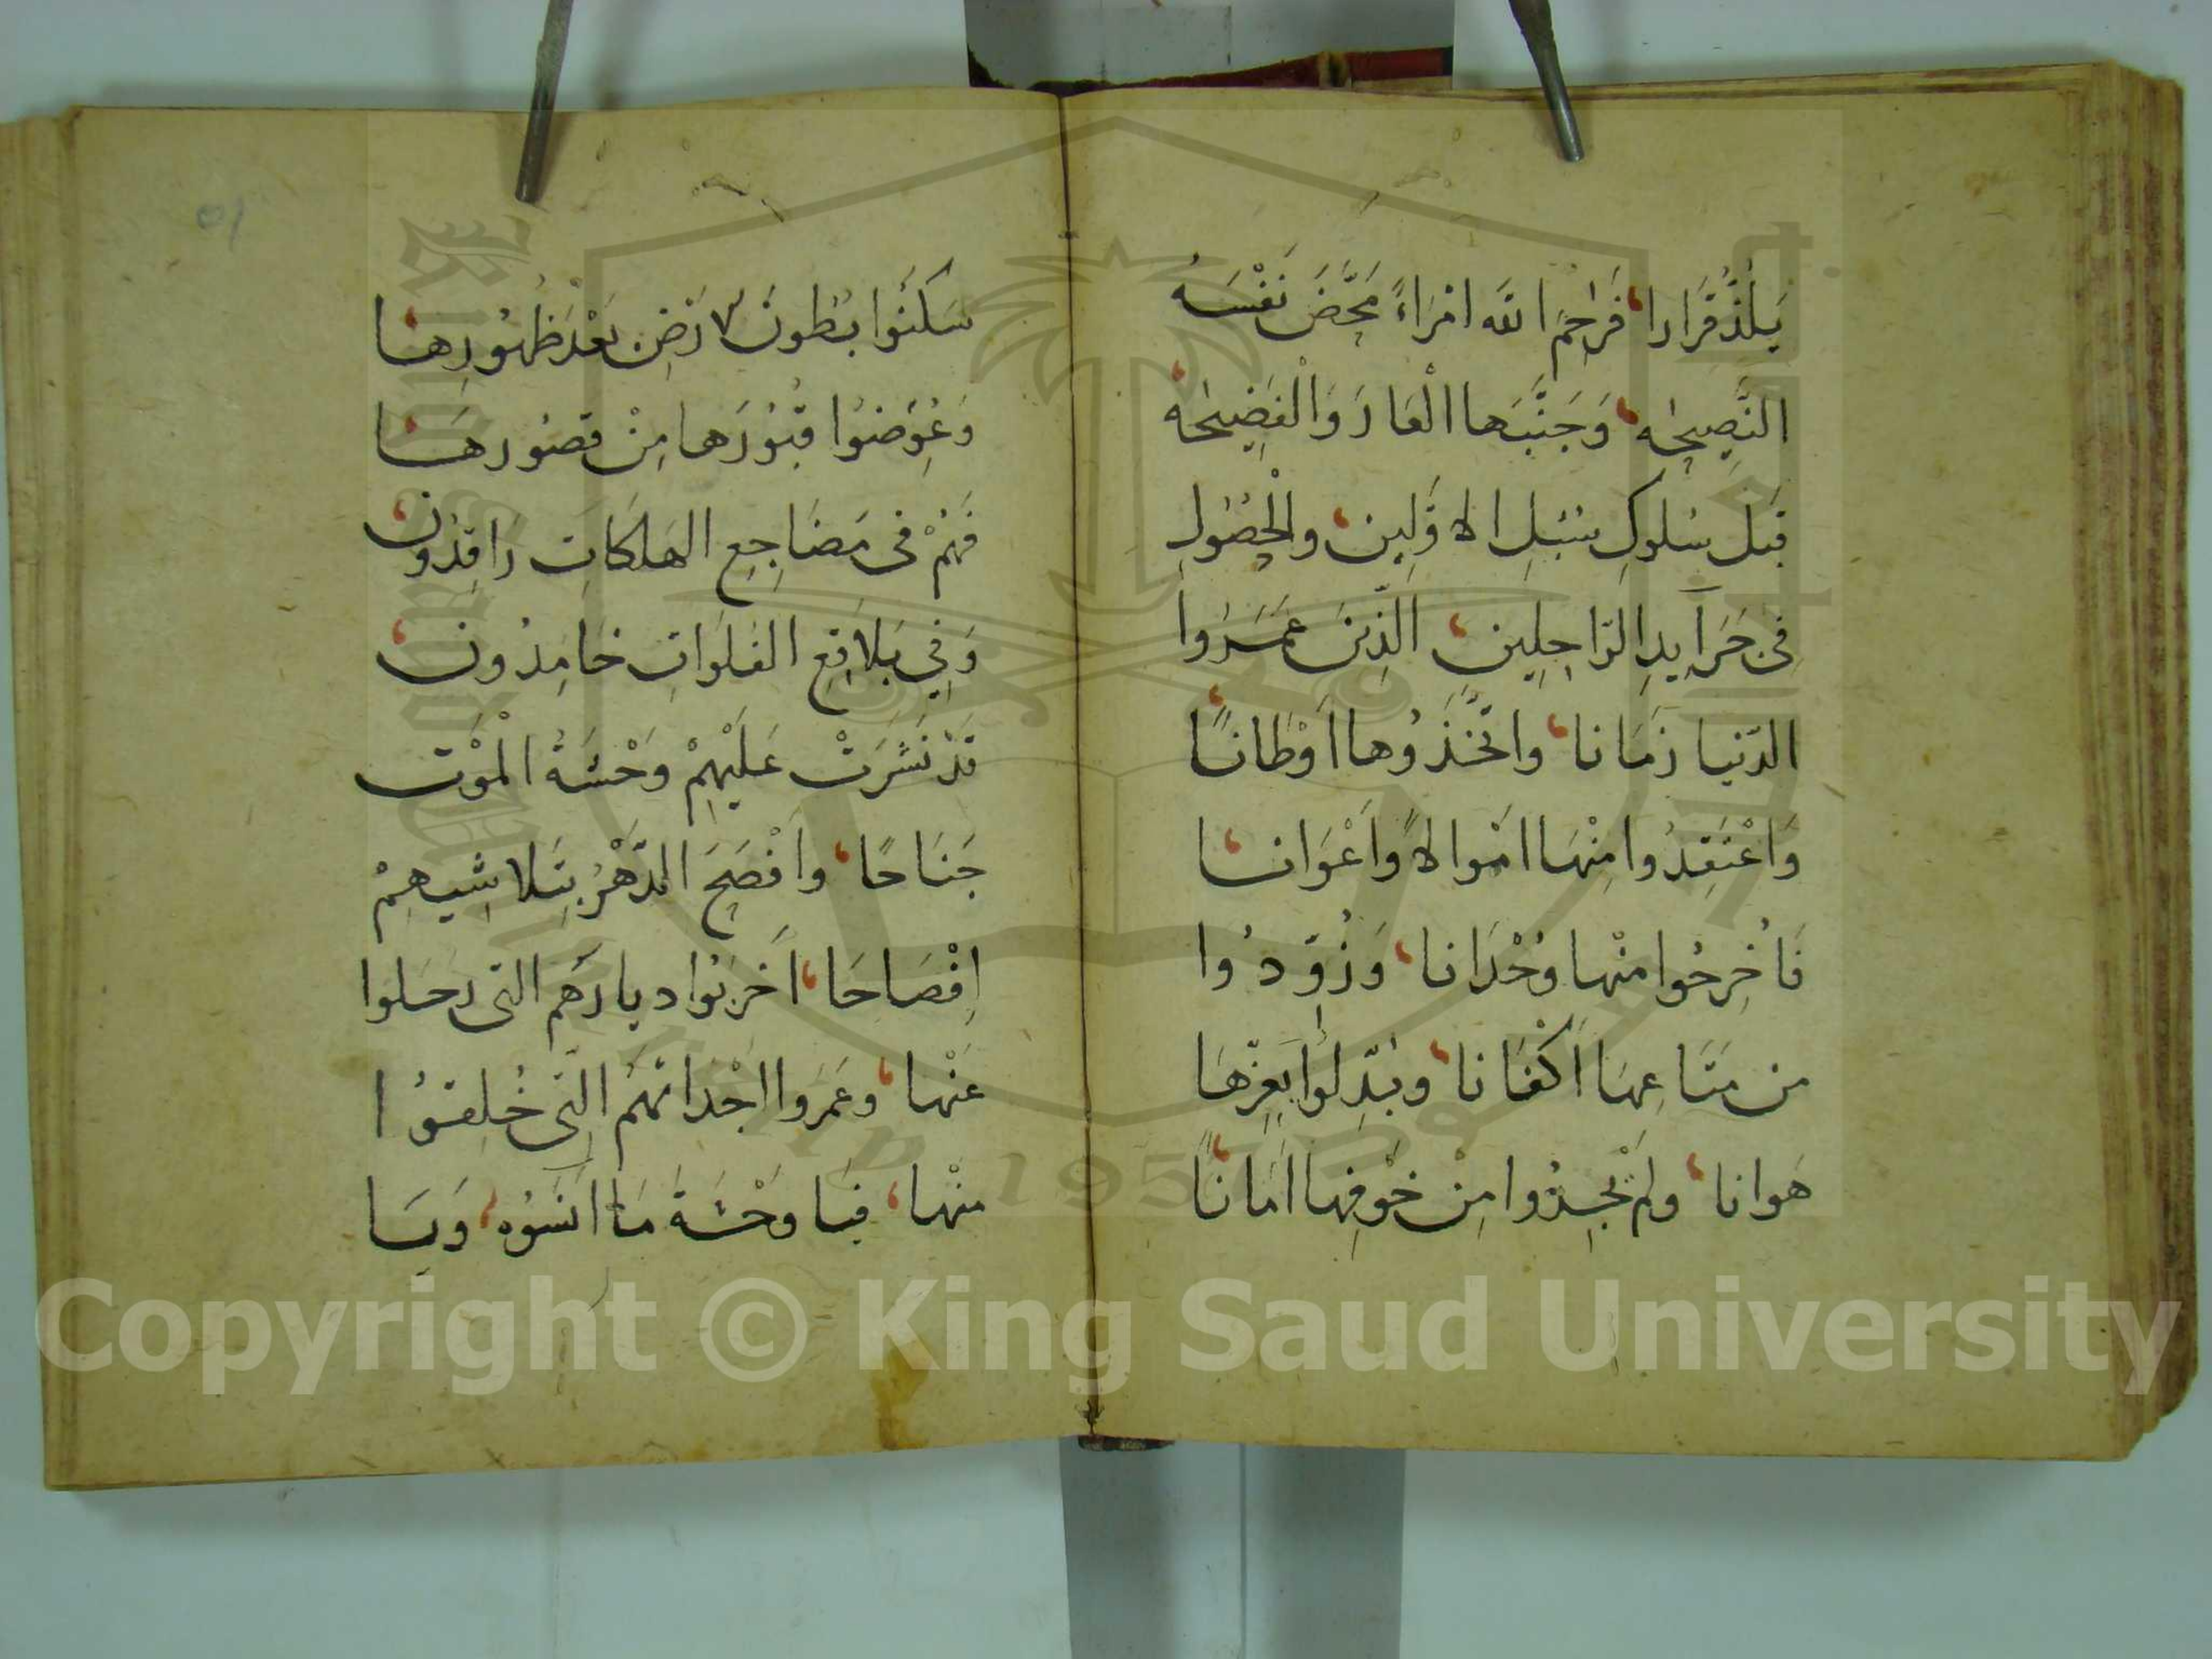 يَلَذُّ قَرَارا، فَرَحِمَ اللّه امْرَاءً مَحَّضَ نَفْسَهُ
النَّصِيحَه، وَجَنَّبَها الْعَارَ وَالْفَضِيحَه،
قَبْلَ سُلوكِ سُبُلِ الاوَّلِين، والْحُصُولِ
فِى جَرَآيدِ الرَّاحِلِينِ، الَّذِينَ عَمَرُوا
الدّنيا زَمَانا، واتَّخَذُوها اَوْطَانًا،
وَاعْتَقِدُوا مِنْهَا امْوالاً وَاَعْوَانا،
فَاُخْرِجُوا منْها وُحْدَانا، وَزُوِّدُوا
من مَتَاعِهَا اَكْفَانا، وبُدِّلُوا بَعِزِّهَا
هَوانا، ولَمْ يَجِدُوا مِنْ خَوْفِهَا اَمَانًا،
سَكَنُوا بُطُونَ الارَضِ بَعْدَ ظُهُورِها،
وَعُوِّضُوا قُبُورَها مِنْ قصُورهَا،
فَهُمْ فى مَضَاجِعِ الهَلَكَاتِ رَاقِدُون،
وَفِي بَلاَقِعِ الفَلَوَاتِ خَامِدُون،
قَدْ نَشَرَتْ عَلَيْهِمْ وَحْشَةُ الْمَوْت
جَنَاحًا، وافْصَحَ الدَّهْرُ بِتَلاشِيهِمْ
اِفْصَاحَا، اَخرَبُوا ديارَهُم التى رَحَلوا
عَنْها، وعَمَروا اجْدَاثهُمُ الَّتِى خُلِقوُا
منْها، فيَا وَحْشَةَ مَا انَسُوُه، وَيَا
Copyright © King Saud University